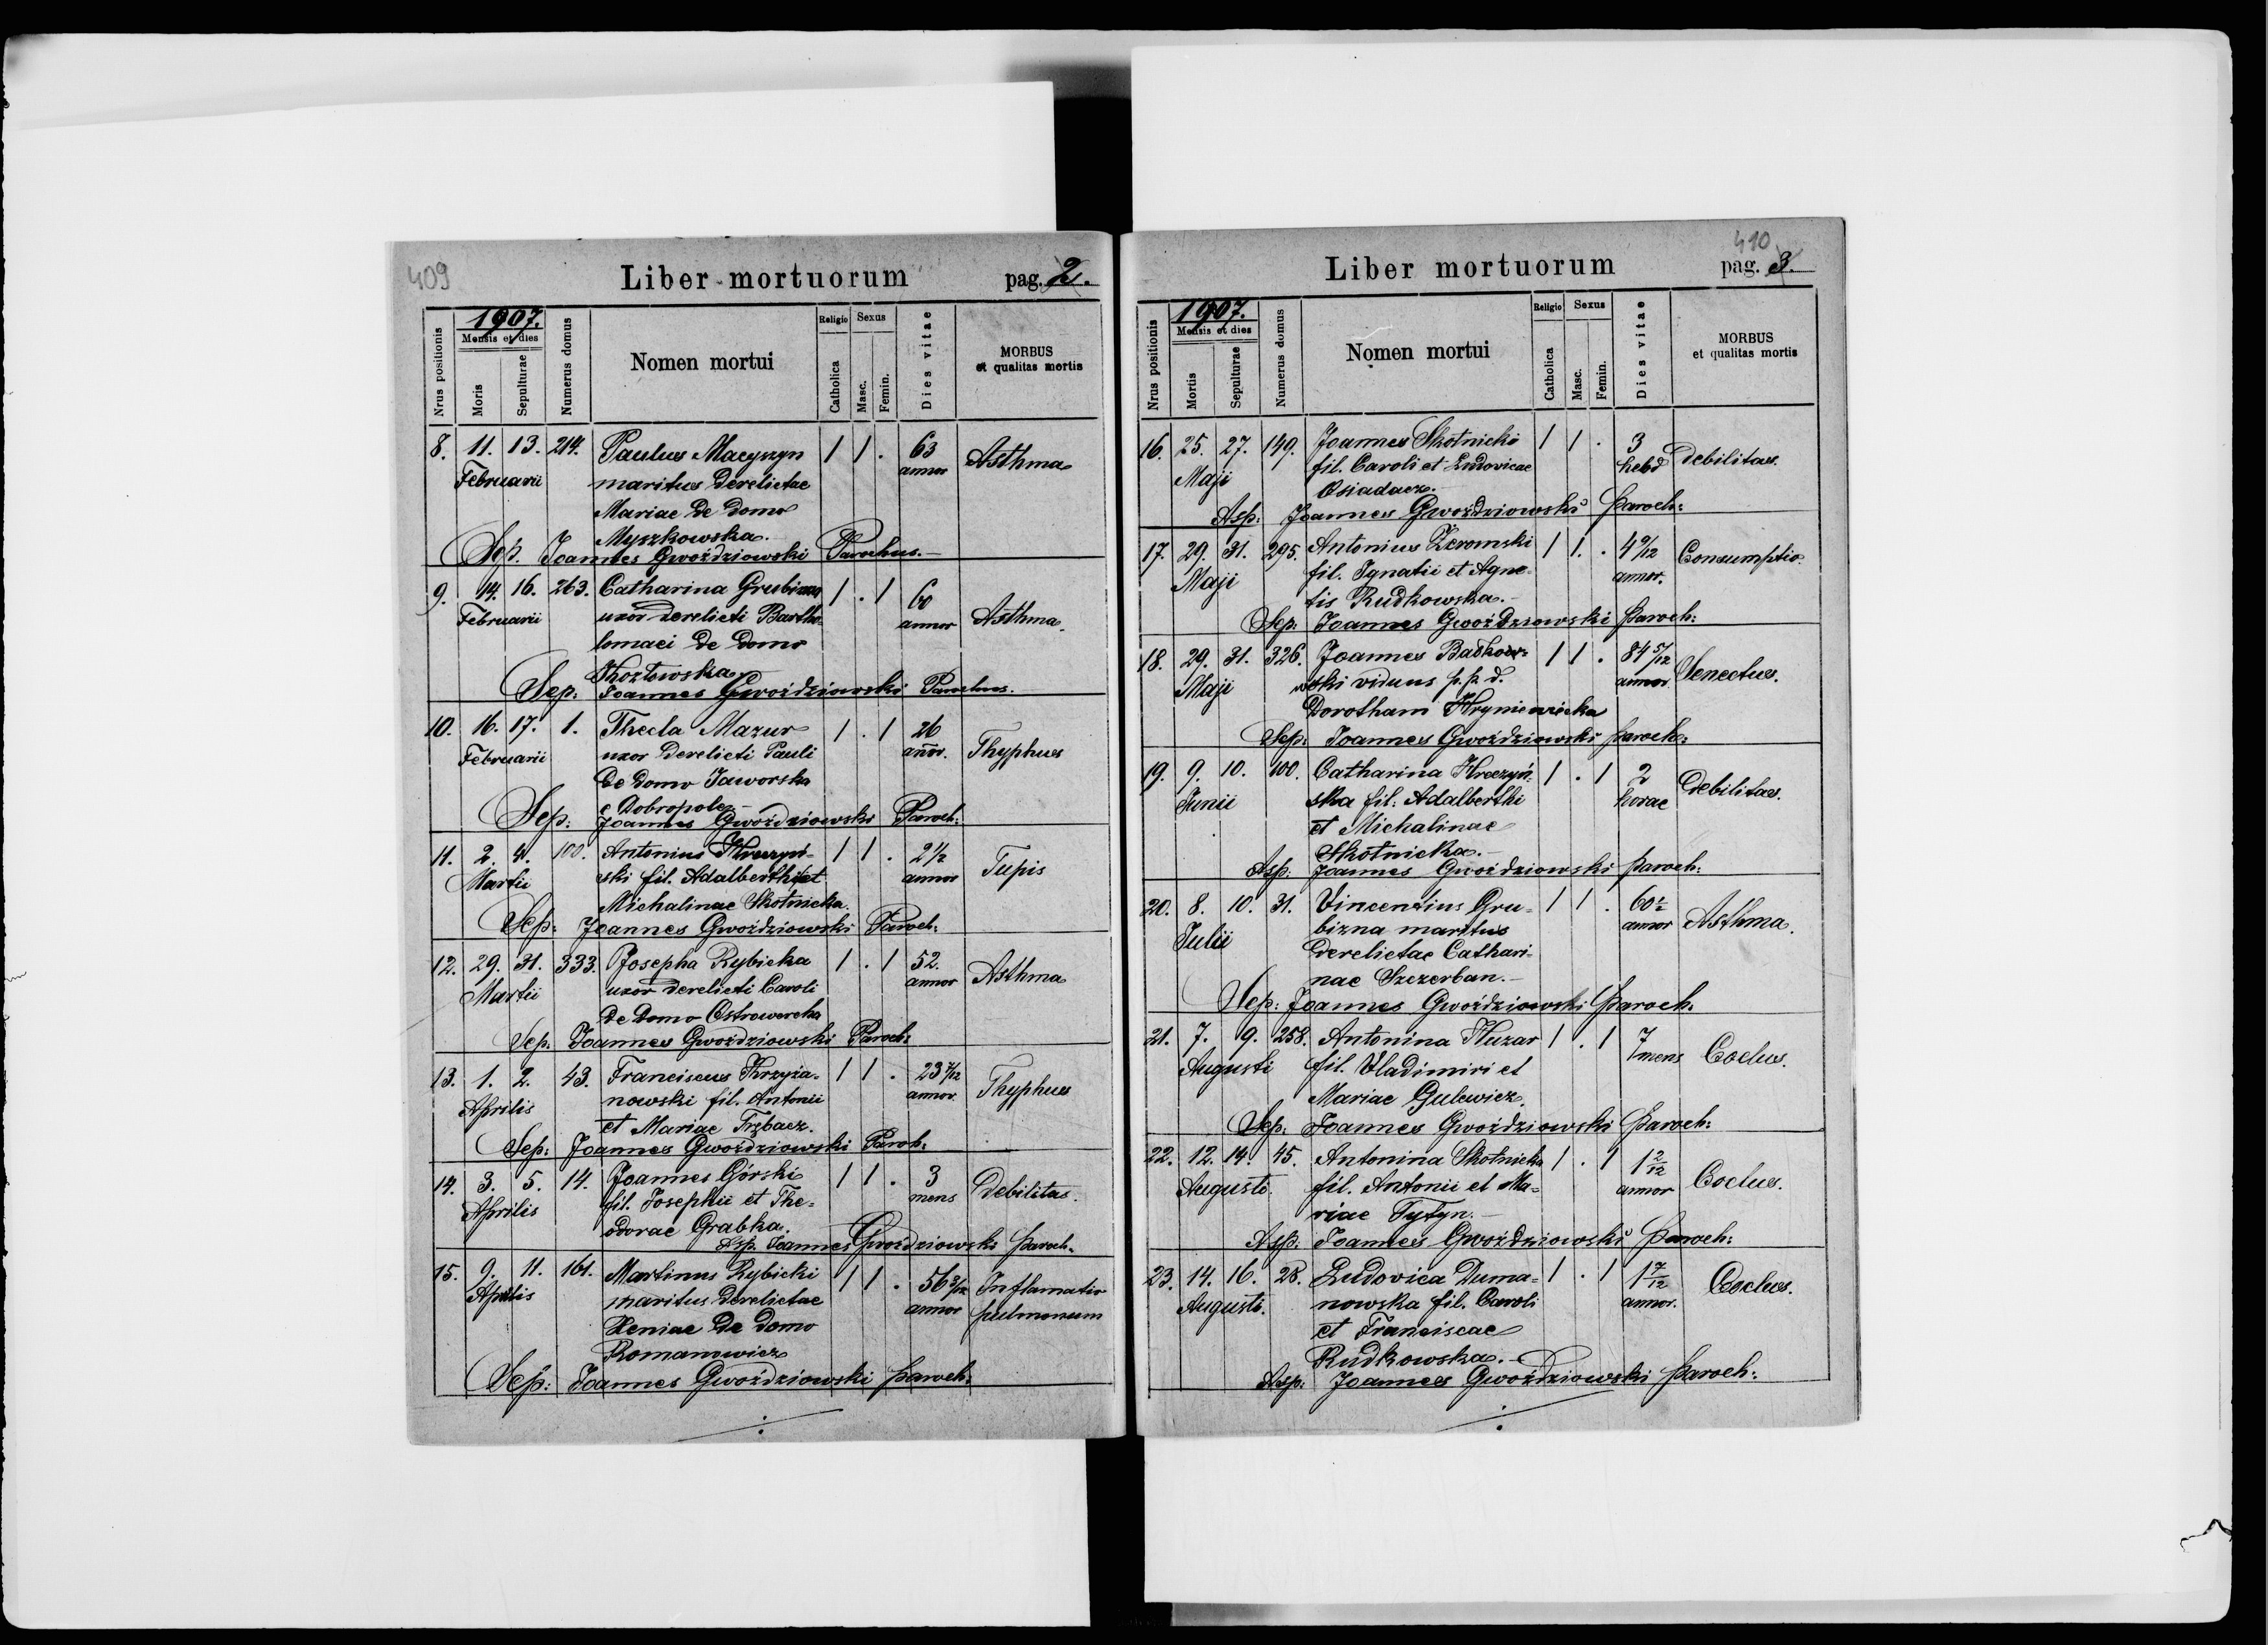 409
Liber mortuorum pag. 2.
Nrus positionis
1907.
Mensis et dies
Moris
Sepulturae
Numerus domus
Nomen mortui
Religio
Catholica
Sexus
Masc.
Femin.
Dies vitae
MORBUS
et qualitas mortis
8. 11. 13. 214. Paulus Macyszyn 1 1 . 63 Asthma
Februarii maritus derelictae annor
Mariae de domo
Myszkowska.
Sep. Joannes Gwoździowski Parochus.
9. 14. 16. 263. Catharina Grubizna 1 . 1 60 Asthma.
Februarii uxor derelicti Bartho- annor
lomaei de domo
Kozłowska
Sep: Joannes Gwoździowski Parochus.
10. 16. 17. 1. Thecla Mazur 1 . 1 26 Thyphus
Februarii uxor derelicti Pauli annor.
de domo Jaworska
e Dobropole.
Sep: Joannes Gwoździowski Paroch:
11. 2. 4. 100. Antonius Kreczyń- 1 1 . 2 1/2 Tupis
Martii ski fil. Adalberthi et annor
Michalinae Skotnicka.
Sep: Joannes Gwoździowski Paroch:
12. 29. 31. 333. Josepha Rybicka 1 . 1 52. Asthma
Martii uxor derelicti Caroli annor
de domo Ostrowercha
Sep. Joannes Gwoździowski Paroch:
13. 1. 2. 43. Franciscus Krzyża- 1 1 . 23 7/12 Thyphus
Aprilis nowski fil. Antonii annor
et Mariae Trębacz.
Sep: Joannes Gwoździowski Paroh:
14. 3. 5. 14. Joannes Górski 1 1 . 3 Debilitas.
Aprilis fil. Josephii et The- mens
odorae Grabka.
Asp. Joannes Gwoździowski Paroch.
15. 9. 11. 161. Martinus Rybicki 1 1 . 56 3/12 Inflamatio
Aprilis maritus derelictae annor pulmonum
Xeniae de domo
Romanowicz
Sep: Joannes Gwoździowski paroch:
410
Liber mortuorum pag. 3.
Nrus positionis
1907.
Mensis et dies
Mortis
Sepulturae
Numerus domus
Nomen mortui
Religio
Catholica
Sexus
Masc.
Femin.
Dies vitae
MORBUS
et qualitas mortis
16. 25. 27. 149. Joannes Skotnicki 1 1 . 3 Debilitas.
Maji fil. Caroli et Ludovicae hebd
Osiadacz.
Asp: Joannes Gwoździowski Paroch:
17. 29. 31. 295. Antonius Żeromski 1 1. . Consumptio.
Maji fil. Ignatii et Agne- annor.
tis Rudkowska.
Sep. Joannes Gwoździowski Paroch:
18. 29. 31. 326. Joannes Badkow- 1 1 . 84 5/12 Senectus.
Maji wski viduus p. p. d. annor
Dorotham Hryniewicka
Sep: Joannes Gwoździowski paroch:
19. 9. 10. 100. Catharina Kreczyń- 1 . 1 2 Debilitas.
Junii ska fil: Adalberthi horae
et Michalinae
Skotnicka.
Asp: Joannes Gwoździowski paroch:
20. 8. 10. 31. Vincenzius Gru- 1 1 . 60 1/2 Asthma.
Julii bizna maritus annor
derelictae Cathari-
nae Szczerban.
Sep: Joannes Gwoździowski Paroch.
21. 7. 9. 258. Antonina Huzar 1 . 1 7 Coclus.
Augusti fil. Vladimiri et mens
Mariae Gulewicz.
Sep. Joannes Gwoździowski Paroch:
22. 12. 14. 45. Antonina Skotnicka 1 . 1 1 2/12 Coclus.
Augusti. fil. Antonii et Ma- annor
riae Tytyn.
Asp: Joannes Gwoździowski Paroch:
23. 14. 16. 28. Ludovica Duma- 1 . 1 1 7/12 Coclus.
Augusti. nowska fil. Caroli annor.
et Franciscae
Rudkowska.
Asp: Joannes Gwoździowski Paroch: